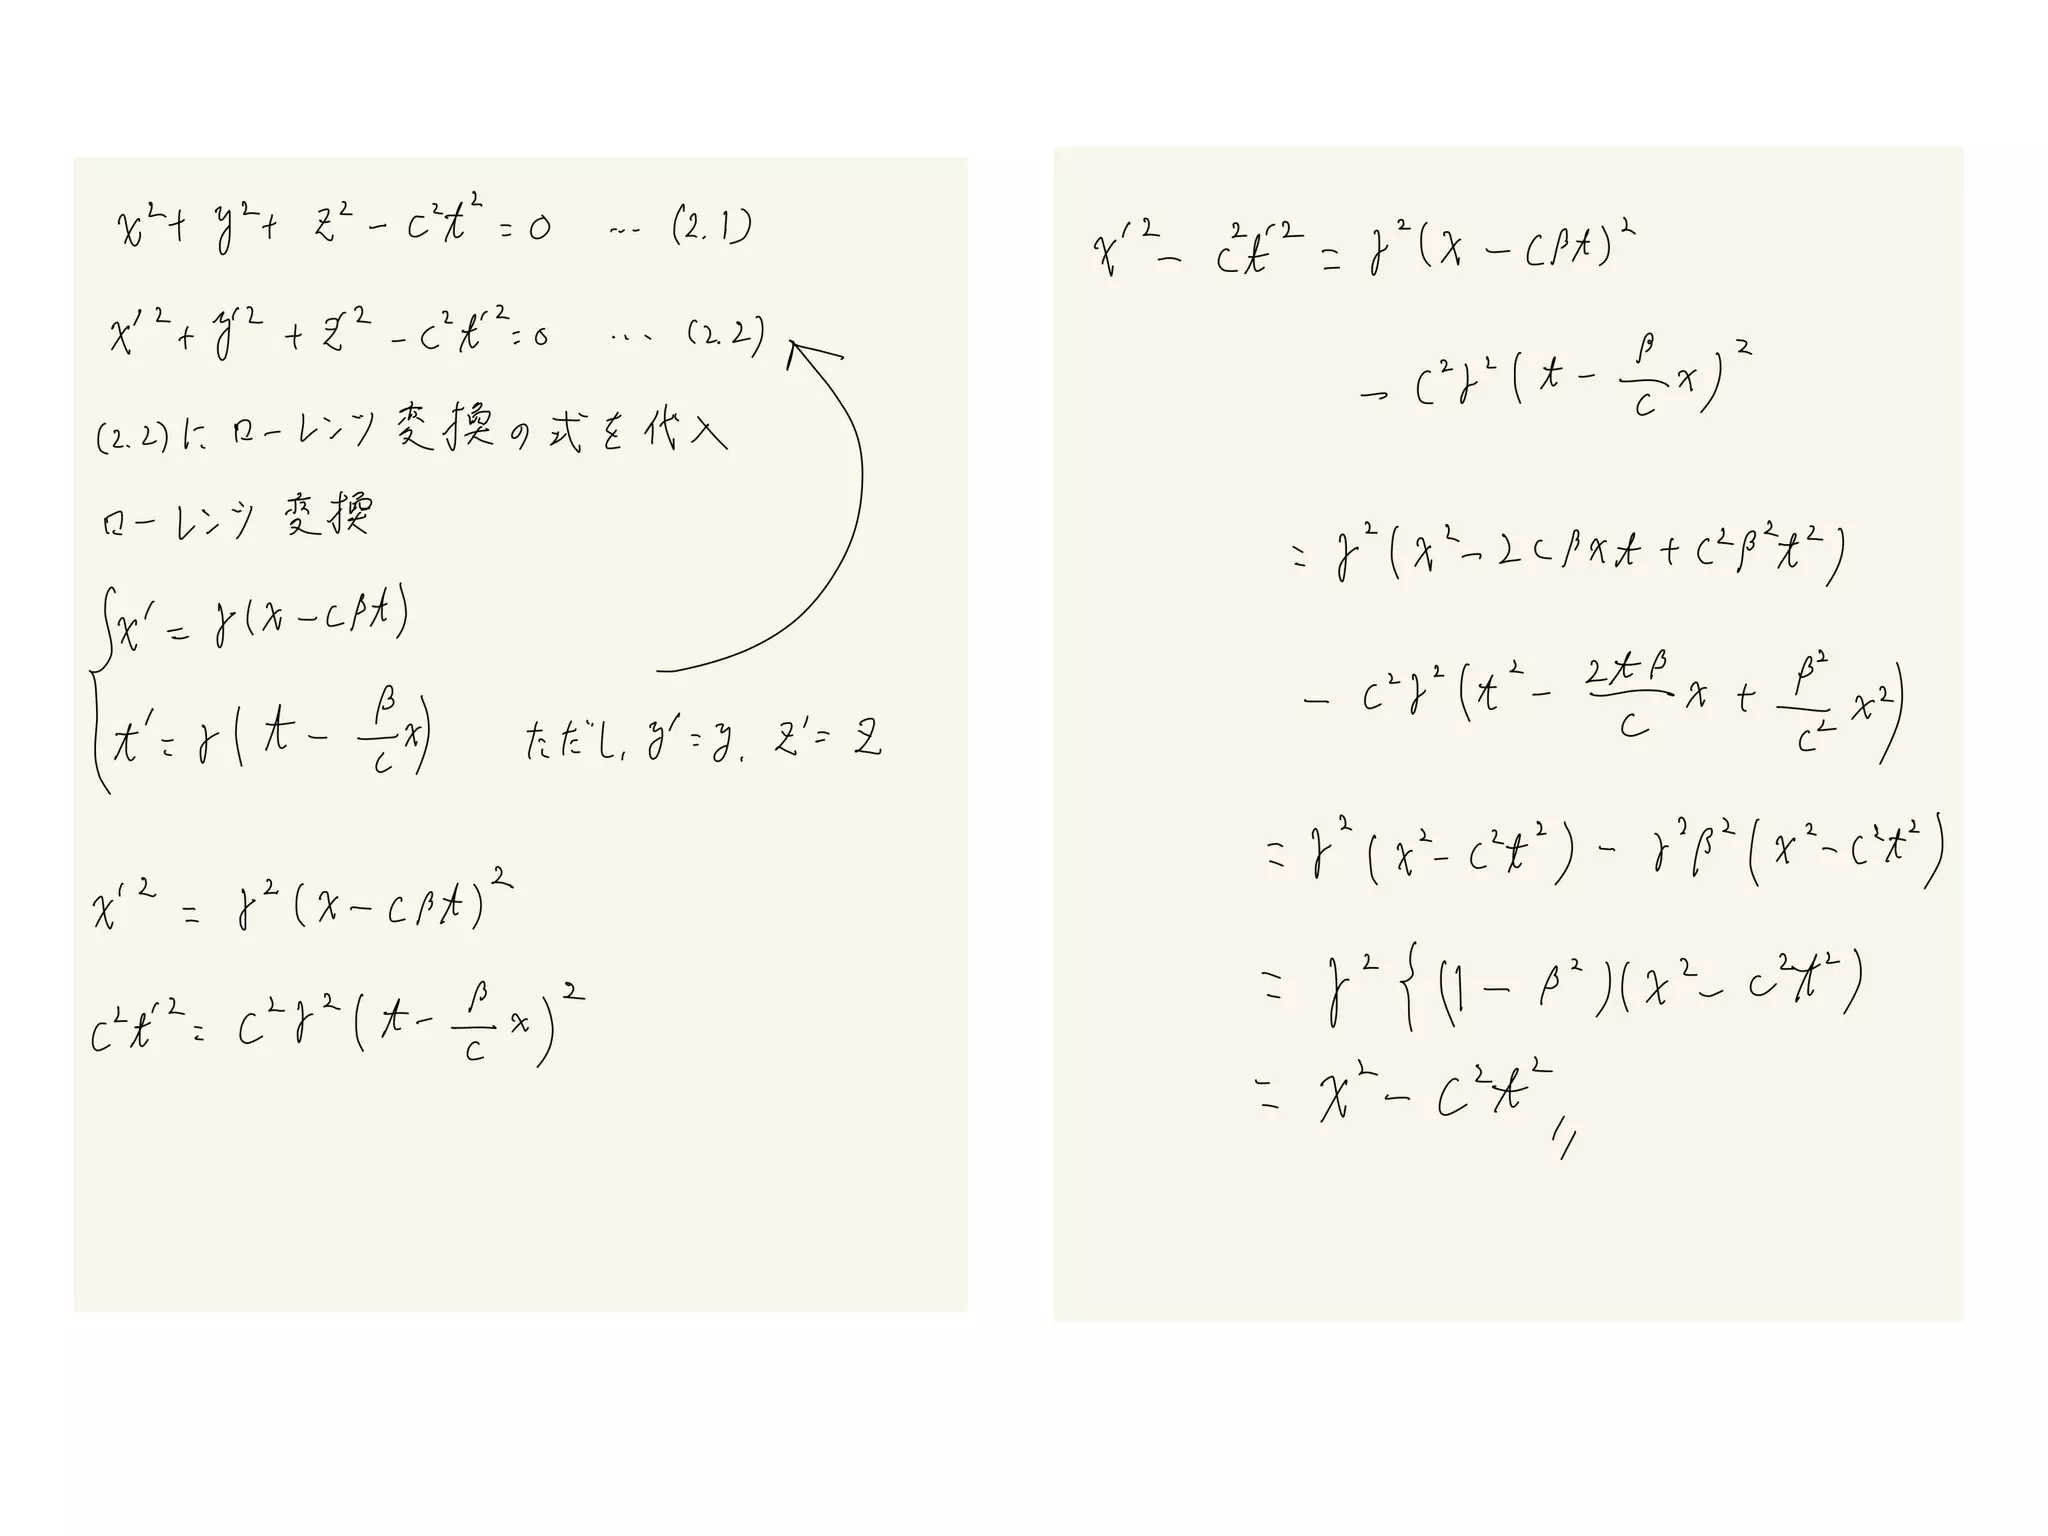 x²+ y²+ z² - c²t² = 0 ... (2.1)
x'²+ y'² + z'² - c²t'² = 0 ... (2.2)
(2.2)に ローレンツ変換の式を代入
ローレンツ変換
{ x' = γ(x - cβt)
t' = γ(t - β/c x) ただし, y' = y, z' = z
x'² = γ²(x - cβt)²
c²t'² = c²γ²(t - β/c x)²
x'² - c²t'² = γ²(x - cβt)²
- c²γ²(t - β/c x)²
= γ²(x² - 2cβxt + c²β²t²)
- c²γ²(t² - 2tβ/c x + β²/c² x²)
= γ²(x² - c²t²) - γ²β²(x² - c²t²)
= γ²{(1 - β²)(x² - c²t²)
= x² - c²t² //